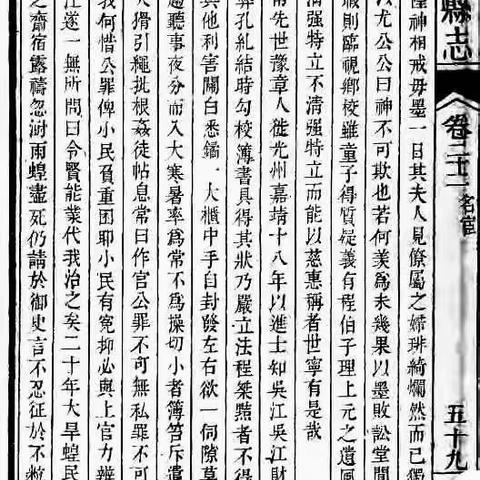 縣志
卷二十二
名宦
五十九
神相戒毋墨一日其夫人見僚屬之婦琲綺爛然而已獨
以尤公公曰神不可欺也若何羨為未幾果以墨敗訟堂閒
則臨視鄉校雖童子得質疑義有程伯子理上元之遺風
清强特立不清强特立而能以慈惠稱者世寧有是哉
甫先世豫章人徙光州嘉靖十八年以進士知吳江吳江財
弊孔紏結時勾校簿書具得其狀乃嚴立法程桀黠者不得
其他利害關白悉鐍一大櫃中手自封發左右欲一伺隙莫
適聽事夜分而入大寒暑率為常不為操切小者簿笞斥遣
猾引繩批根姦徒帖息常曰作官公罪不可無私罪不可
我何惜公罪俾小民負重困耶小民有寃抑必與上官力辨
江遂一無所問曰令賢能業代我治之矣二十年大旱蝗民
之齋宿露禱忽澍雨蝗盡死仍請於御史言不忍征於不